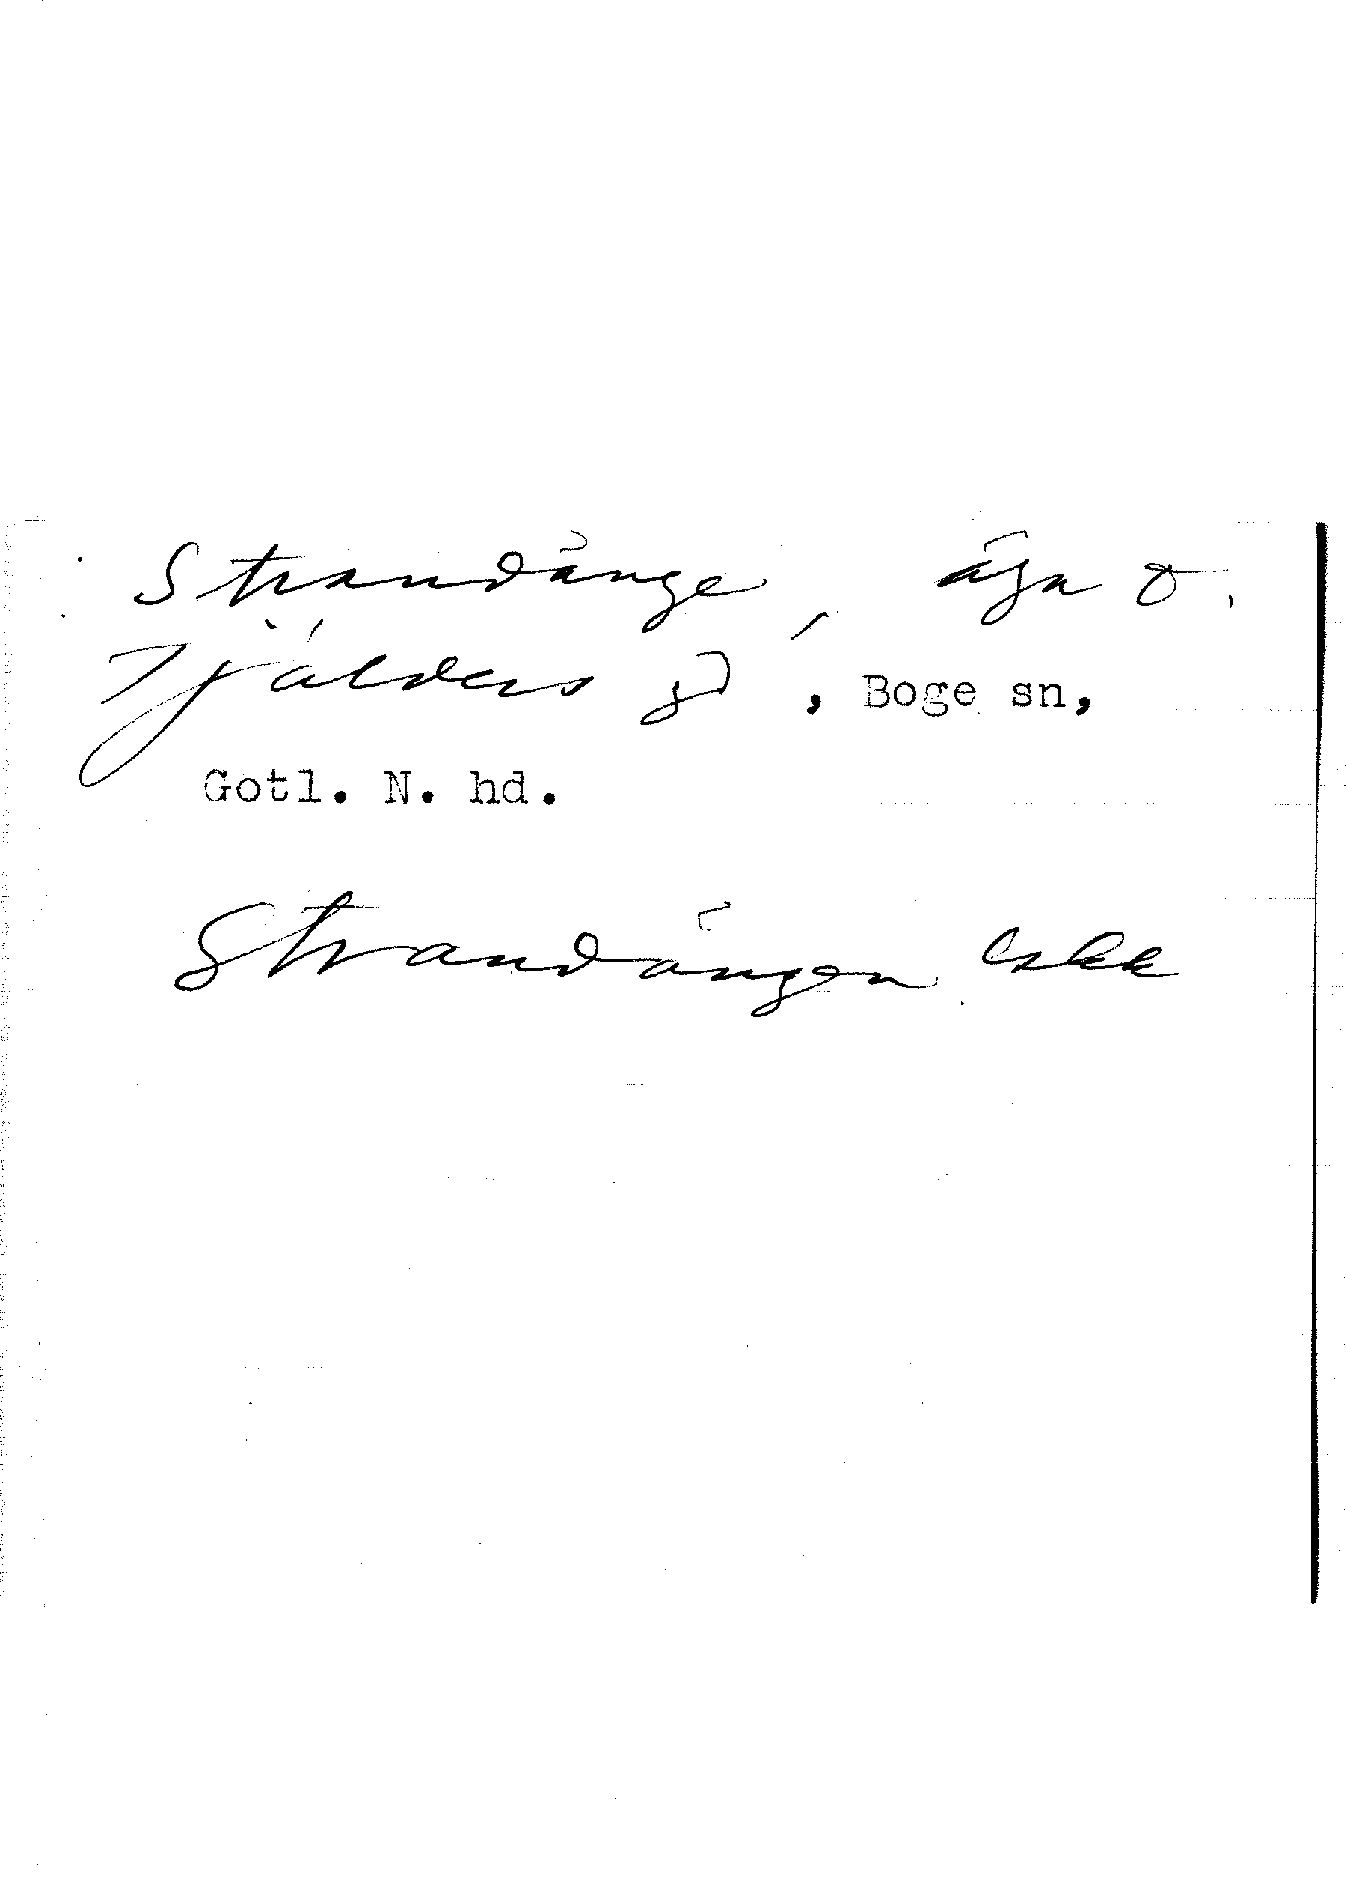 Strandänge, äga o.
Tjälders gd, Boge sn,
Gotl. N. hd.
Strandängen eskk